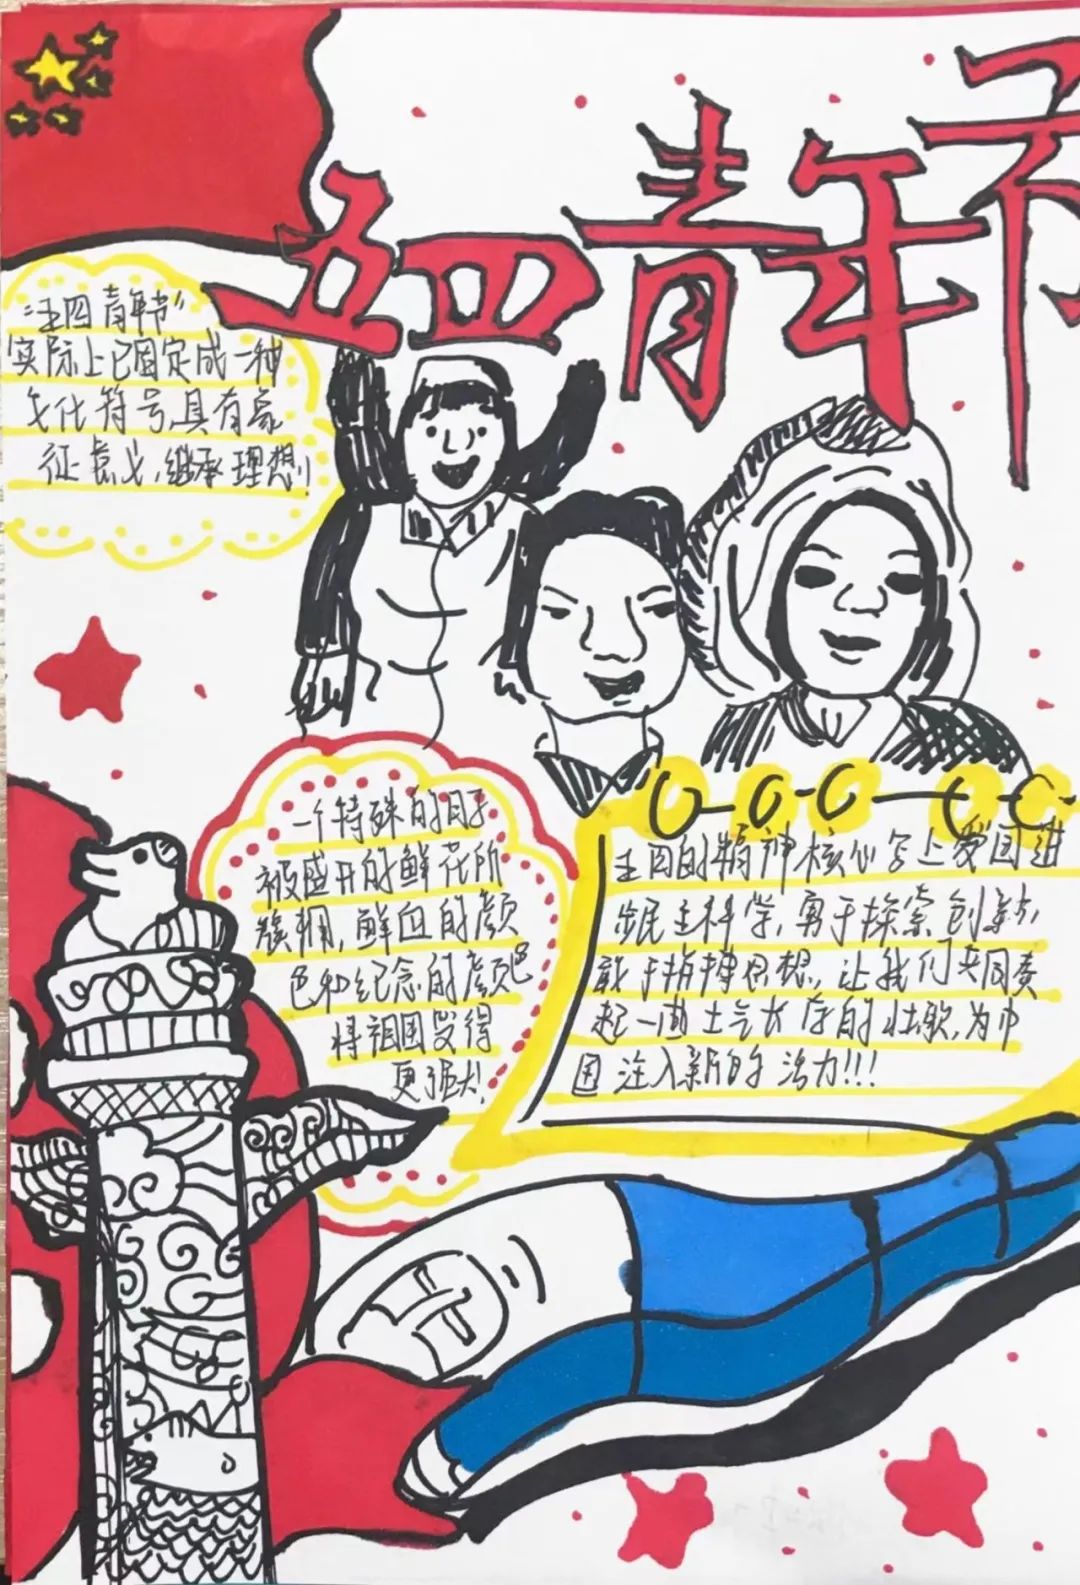 五四青年节
"五四青年节"
实际上已固定成一种
文化符号,具有象
征意义,继承理想!
一个特殊的日子
被盛开的鲜花所
簇拥,鲜血的颜
色和纪念的颜色
将祖国变得
更强大!
五四的精神核心写上爱国进
步民主科学,勇于探索创新,
敢于拼搏思想,让我们共同奏
起一曲士气长存的壮歌,为中
国注入新的活力!!!